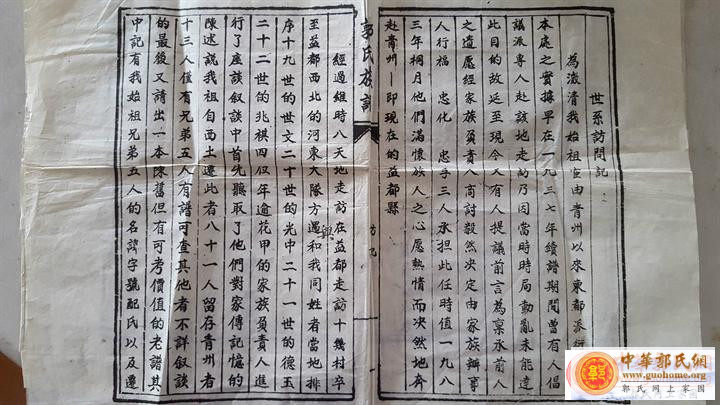 世系訪問記
為澂清我始祖宣由青州以來東都派衍
本處之實據早在一九三七年續譜期間曾有人倡
議派專人赴該地走訪乃因當時時局動亂未能達
此目的故延至現今又有人提議前言為稟承前人
之遺愿經家族負責人商討毅然決定由家族辦事
人行福 忠化 忠手三人承担此任時值一九八
三年桐月他們滿懷族人之心愿熱情而決然地奔
赴青州—即現在的益都縣
郭氏族譜
訪記
一
經過維時八天地走訪在益都走訪十幾村卒
至益都西北的河東大隊方遇和我同姓者當地排
序十九世的世文二十世的光中二十一世的德玉
二十二世的兆祺四位年逾花甲的家族負責人進
行了座談叙談中首先聽取了他們對家傳記憶的
陳述說我祖自西土遷此者八十一人留存青州者
十三人僅有兄弟五人有譜可查其他者不詳叙談
的最後又請出一本陳舊但有可考價值的老譜其
中記有我始祖兄弟五人的名諱字號配氏以及遷
興
中華郭氏網
www.guohome.org
郭氏网上家園